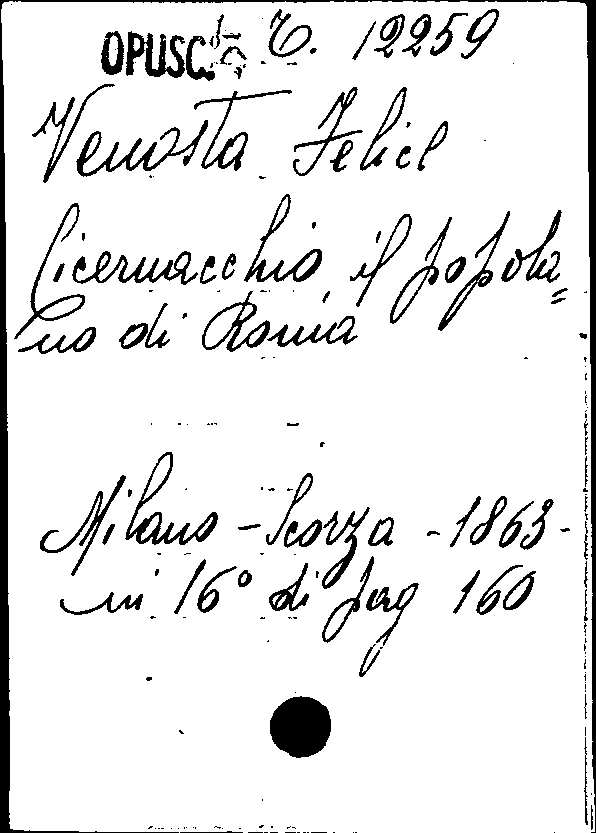 OPUSC. C. 12259
Venosta Felice
Ciceruacchio, il popola=
no di Roma
Milano - Scorza - 1863 -
in 16° di pag 160